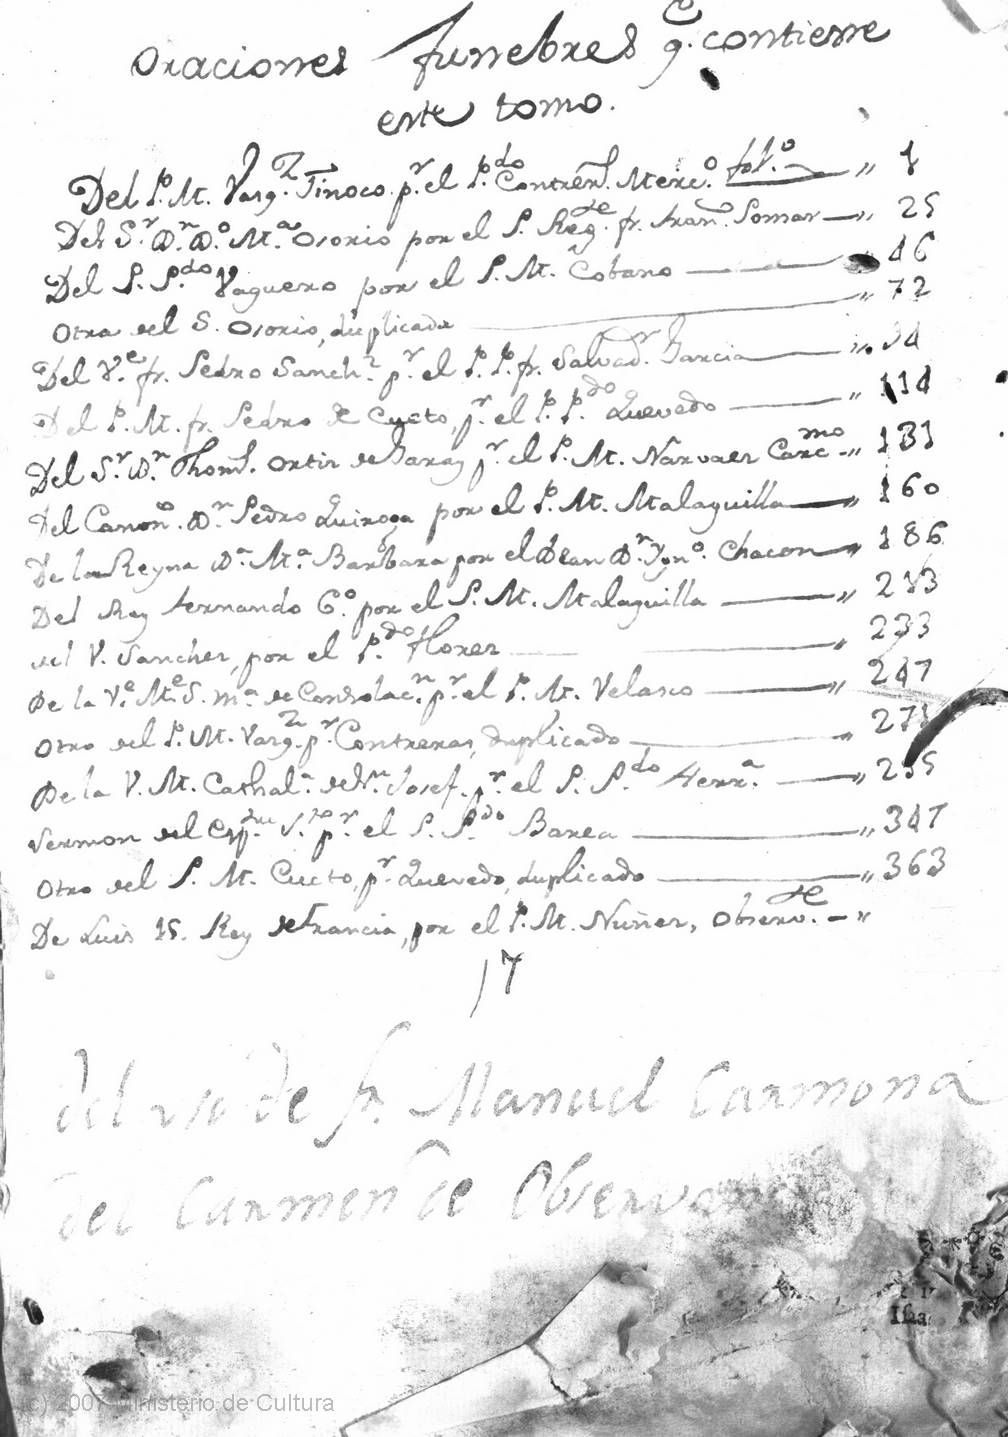 Oraciones funebres q.e contiene
este tomo.
Del P. M. Varg.z Tinoco. p.r el P. P.do Contreras. Merc.o fol.o — „ 1
Del S.r D.n D.o M.a Osorio por el P. Reg.te fr. Fran.co Somar — „ 25
Del P. P.do Vaguero por el P. M. Cobano — „ 46
Otra del S. Osorio, duplicada — „ 72
Del V.e fr. Pedro Sanch.z p.r el P. P. fr. Salvad.r Garcia — „ 94
Del P. M. fr. Pedro de Cueto, p.r el P. P.do Quevedo — „ 114
Del S.r D.n Thom.s Ortiz de Garay p.r el P. M. Narvaez Carm.mo — „ 131
Del Canon.o D.n Pedro Quiroga por el P. M. Malaguilla — „ 160
De la Reyna D.a M.a Barbara por el Dean D.n Ygn.o Chacon — „ 186
Del Rey Fernando 6.o por el P. M. Malaguilla — „ 213
del V. Sanchez, por el P.do Florez — „ 233
De la V.e M.e S. M.a de Consolac.n p.r el P. M. Velasco — „ 247
Otro del P. M. Varg.z p.r Contreras, duplicado — „ 271
De la V. M. Cathal.a de S.n Josef. p.r el P. P.do Herr.a — „ 295
Sermon del Esp.tu S.to p.r el P. P.do Barea — „ 347
Otro del P. M. Cueto, p.r Quevedo, duplicado — „ 363
De Luis 15. Rey de Francia, por el P. M. Nuñez, Observ.te — „
17
del uso de fr. Manuel Carmona
del Carmen de Observan
Iha
(c) 2007 Ministerio de Cultura